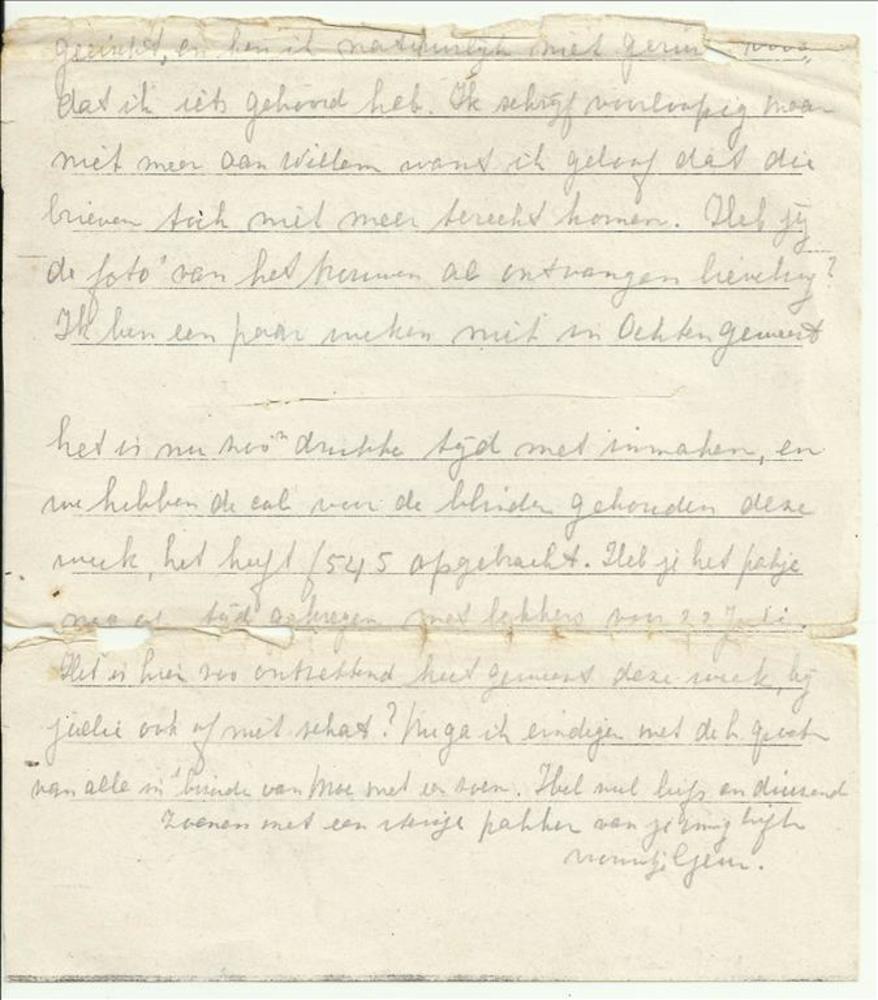 en ben ik natuurlijk niet
dat ik iets gehoord heb. Ik schrijf voorloopig maar
niet meer aan Willem want ik geloof dat die
brieven toch niet meer terecht komen. Heb jij
de foto's van het trouwen al ontvangen lieveling?
Ik ben een paar weken niet in Ochten geweest
het is nu zoo'n drukke tijd met inmaken, en
we hebben de col voor de blinden gehouden deze
week, het heeft f 545 opgebracht. Heb je het pakje
nog op tijd gekregen met lekkers voor 22 Juli.
Het is hier zoo ontzettend heet geweest deze week, bij
jullie ook of niet schat? Nu ga ik eindigen met de h. groeten
van alle in 't bizonder van Moe met een zoen. Heel veel liefs en duizend
zoenen met een stevige pakker van je innig liefh
vrouwtje